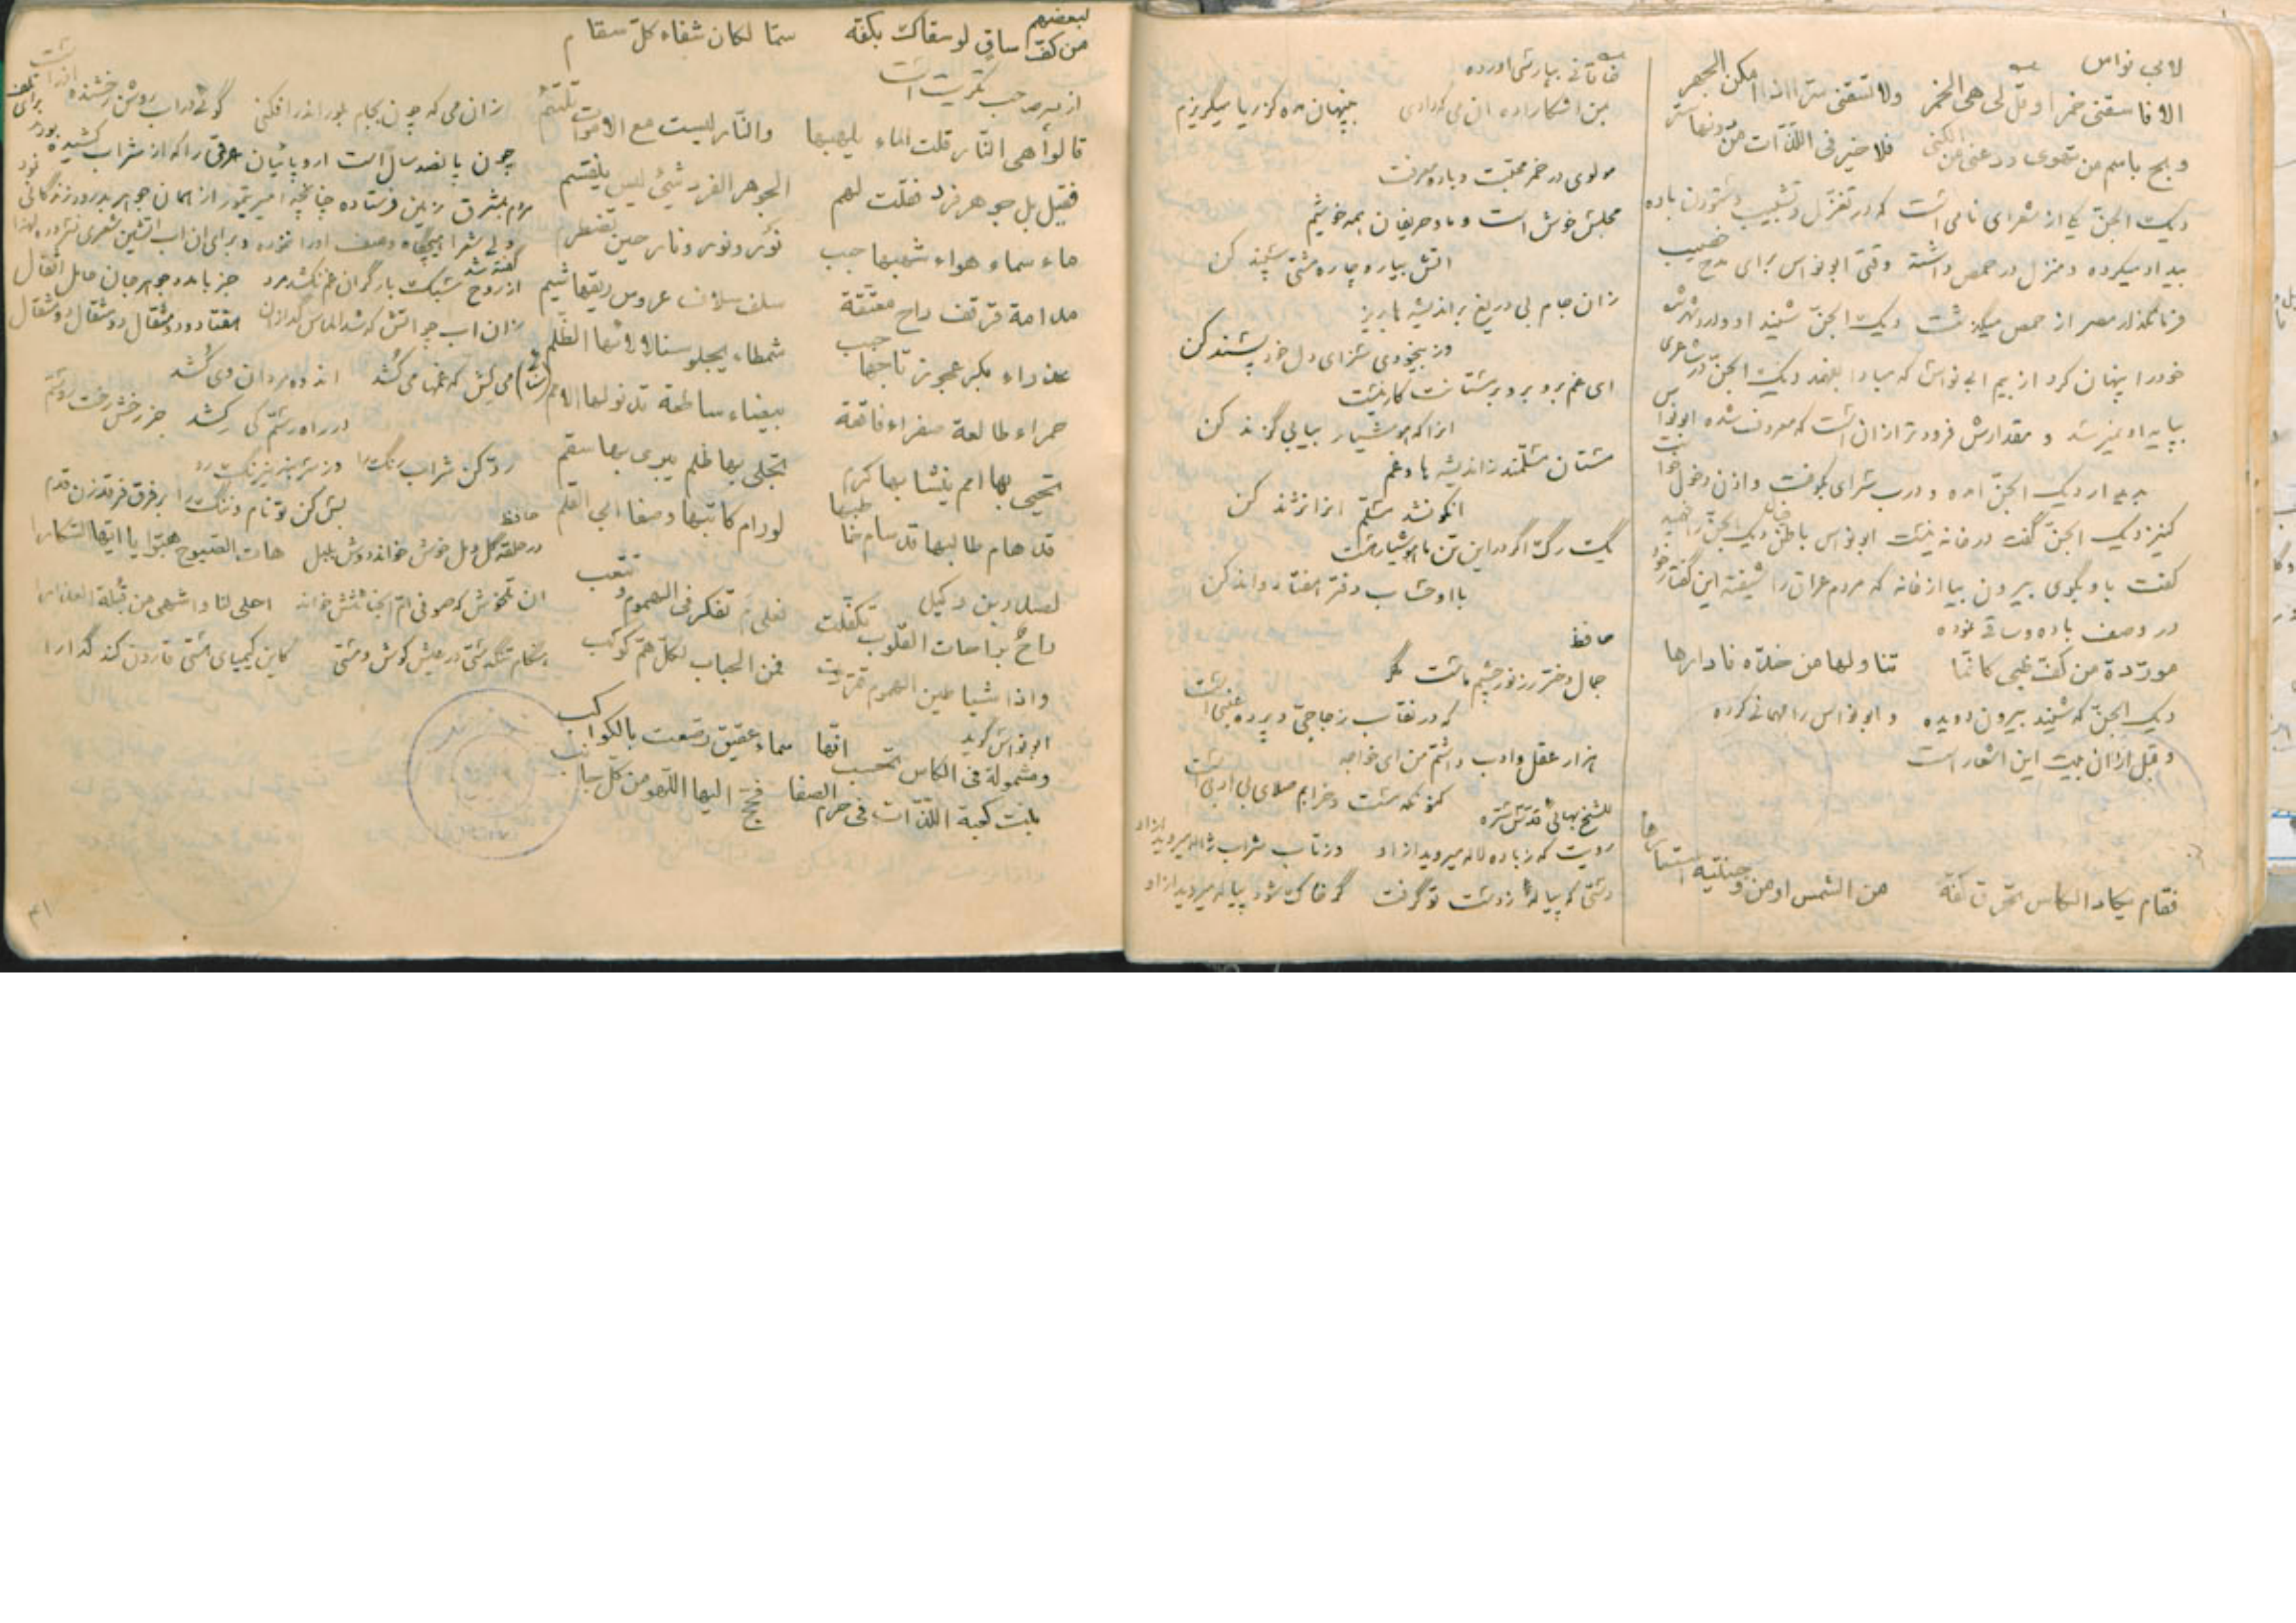 لابی نواس
الا فاسقنی خمرا و قل لی هی الخمر ولا تسقنی سرا اذا امکن الجهر
و بح باسم من تهوی و دعنی من الکنی فلا خیر فی اللذات من دونها ستر
دیک الجن یکی از شعرای نامی است که در تغزل و تشبیب و ستودن باده
بیداد میکرده و منزل در حمص داشته وقتی ابونواس برای مدح خصیب
فرمانگذار مصر از حمص میگذشت دیک الجن شنید او وارد شهر شد
خود را پنهان کرد از بیم ابی نواس که مبادا بفهمد دیک الجن در شاعری
بپایه او نمیرسد و مقدارش فرودتر از آن است که معروف شده ابونواس
بدیدار دیک الجن آمده و درب سرای کوفت و اذن دخول خواست
کنیز دیک الجن گفت در خانه نیست ابونواس باطن خیال دیک الجن را فهمید
گفت باو بگوی بیرون بیا از خانه که مردم عراق را شیفته این گفتار خود
در وصف باده و ساقی نموده
موردة من کف ظبی کانما تناولها من خده فادارها
دیک الجن که شنید بیرون دویده و ابونواس را مهمانی کرده
و قبل از آن بیت این اشعار است
فقام یکاد الکاس تحرق کفه من الشمس او من وجنتیه استعارها
خاقانی بپارسی آورده
من آشکارا ده آن می که داری بپنهان مده کز ریا میگریزم
مولوی در خمر محبت و باده معرفت
مجلس خوش است و ما و حریفان همه خوشیم
آتش بیار و چاره مشتی سپند کن
زان جام بی دریغ بر اندیشه ها بریز
وز بیخودی سزای دل خود پسند کن
ای غم برو برو بر مستانت کار نیست
آنرا که هوشیار بیابی گزند کن
مستان مسلمند ز اندیشه ها و غم
آنکو نشد مسلم آنرا نژند کن
یک رگ اگر در این تن ما هوشیار هست
با او حساب دفتر هفتاد و اند کن
حافظ
جمال دختر رز نور چشم ماست مگر
که در نقاب زجاجی و پرده عنبی است
هزار عقل و ادب داشتم من ای خواجه
کنونکه مست و خرابم صلای بی ادبی است
للشیخ بهائی قدس سره
رویت که ز باده لاله میروید ازو وز تاب شراب ژاله میروید ازو
دستی که پیاله ز دست تو گرفت گر خاک شود پیاله میروید ازو
لبعضهم
من کف ساق لو سقاک بکفه سما لکان شفاء کل سقام
قالوا هی النار قلت الماء یلهبها والنار لیست مع الامواه تلتئم
فقیل بل جوهر فرد فقلت لهم الجوهر الفرد شیئ لیس ینقسم
ماء سماء هواء شهبها حبب نؤر و نور و نار حین تضطرم
مدامة قرقف راح معتقة سلف سلاف عروس ریقها شبم
عذراء بکر عجوز تاجها حبب شمطاء یجلو سنا لألائها الظلم
حمراء طالعة صفراء فاقعة بیضاء ساطعة تدنو لها الامم
تحیی بها امم ینشا بها کرم تجلی بها ظلم یبری بها سقم
قد هام طالبها قد سام خاطبها لو رام کاتبها وصفا ابی القلم
راح براحات القلوب تکفلت فعلی م تفکر فی الهموم و تتعب
واذا شیاطین الهموم تمردت فمن الحباب لکل هم کوکب
ابونواس گوید
و مشمولة فی الکاس تحسب انها سماء عقیق رصعت بالکواکب
بنت کعبة اللذات فی حرم الصفا فحج الیها اللهو من کل جانب
زان می که چون بجام بلور اندر افکنی گوئی در آب روشن رخشنده آذر است
چون پانصد سال است اروپائیان عرقی را که از شراب کشیده بودند برای
مردم مشرق زمین فرستاده چنانچه امیر تیمور از همان جوهر بدرود زندگانی نمود
ولی شعرا هیچگاه وصف او را ننموده و برای آن آب آتشین شعری نسروده لهذا گفته شد
از روح سبک بار گران غم نکشد مرد جز باده و جوهر جان حامل اثقال
زان آب چو آتش که شد الماس گدازان هفتاد و دو مثقال دو مثقال دو مثقال
می کش که غمها می کُشد اندوه مردان وی کُشد
در راه رستم کی کشد جز رخش رخت روستم
رو کن شراب رنگ را وز سر بنه نیرنگ را
بس کن تو نام و ننگ را بر فرق فرقد زن قدم
حافظ
در حلقه گل و مل خوش خواند دوش بلبل هات الصبوح هبوا یا ایها السکارا
آن تلخوش که صوفی ام الخبائثش خواند احلی لنا و اشهی من قبلة العذارا
هنگام تنگدستی در عیش کوش و مستی کاین کیمیای هستی قارون کند گدا را
۴۱